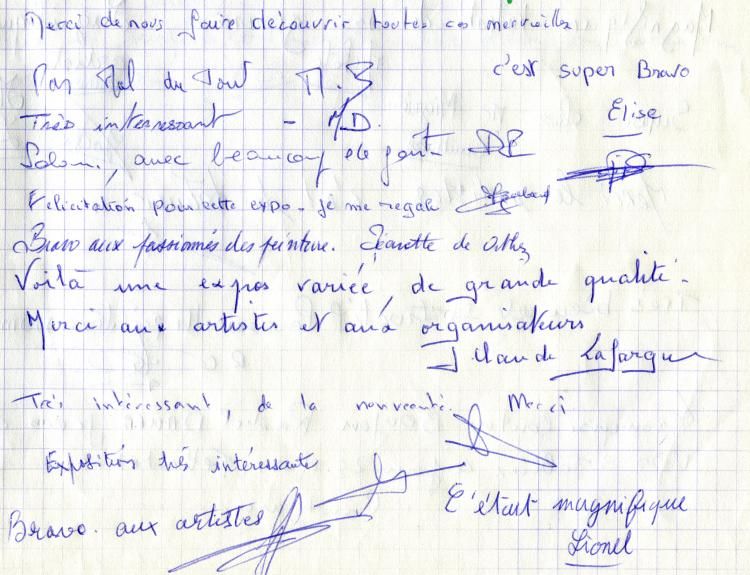 Merci de nous faire découvrir toutes ces merveilles
c'est super Bravo
Elise
Pas Mal du Tout M.B
Très interressant - M.D.
Salon, avec beaucoup de goût
Felicitation pour cette expo - je me regale
Bravo aux passionnés des peinture. Jeanette de Orthez
Voilà une expos variée, de grande qualité -
Merci aux artistes et aux organisateurs
J Claude Lafargue
Très intéressant, de la nouveauté. Merci
Exposition très intéressante
Bravo. aux artistes
C'était magnifique
Lionel